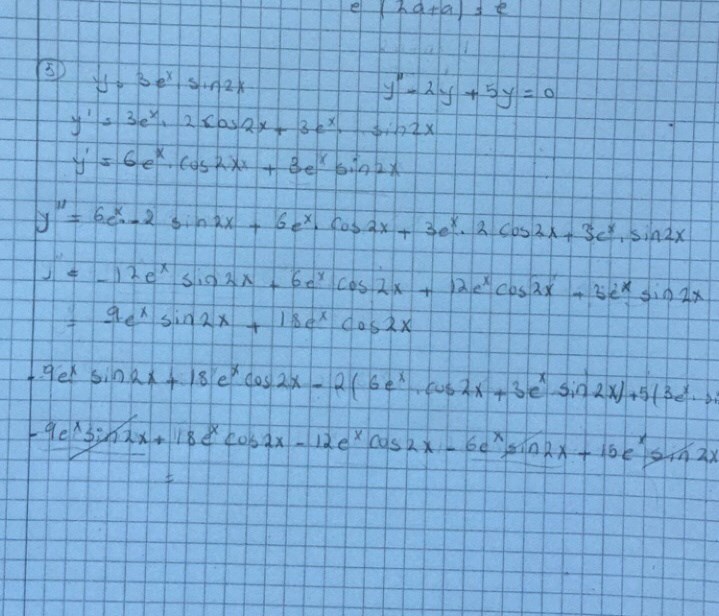 e (2a+a) = e
③ y = 3eˣ. sin2x y" - 2y + 5y = 0
y' = 3eˣ. 2 cos2x + 3eˣ. sin2x
y' = 6eˣ. cos2x + 3eˣ sin2x
y" = 6eˣ. -2 sin2x + 6eˣ. cos2x + 3eˣ. 2 cos2x + 3eˣ. sin2x
= -12eˣ sin2x + 6eˣ cos2x + 12eˣ cos2x + 3eˣ sin2x
= 9eˣ sin2x + 18eˣ cos2x
-9eˣ sin2x + 18eˣ cos2x - 2(6eˣ. cos2x + 3eˣ sin2x) + 5(3eˣ. si
-9eˣ sin2x + 18eˣ cos2x - 12eˣ cos2x - 6eˣ sin2x + 15eˣ sin2x
=